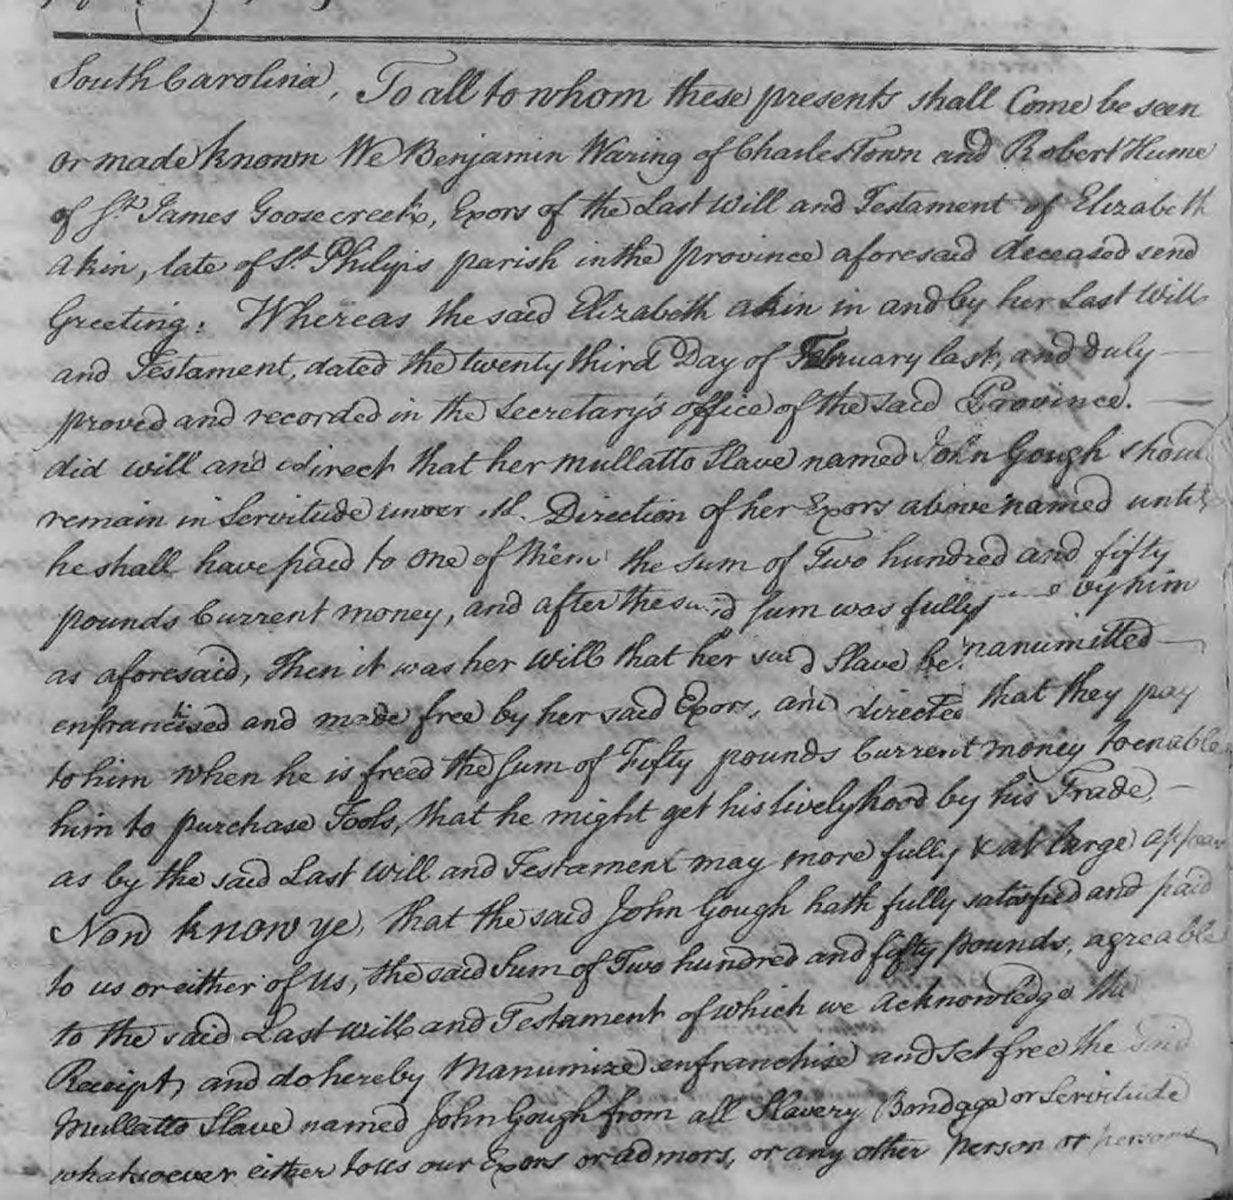 South Carolina, To all to whom these presents shall Come be seen
or made known We Benjamin Waring of Charles Town and Robert Hume
of St. James Goosecreek, Exors of the Last Will and Testament of Elizabeth
Akin, late of St. Philips parish in the province aforesaid deceased send
Greeting: Whereas the said Elizabeth Akin in and by her Last Will
and Testament, dated the twenty third Day of February last, and duly
proved and recorded in the Secretary's office of the said Province.
did will and direct that her mullatto Slave named John Gough should
remain in Servitude under the Direction of her Exors above named until
he shall have paid to one of them the sum of Two hundred and fifty
pounds Current money, and after the said sum was fully by him
as aforesaid, then it was her Will that her said Slave be manumitted
enfrancised and made free by her said Exors, and directed that they pay
to him when he is freed the sum of Fifty pounds Current money to enable
him to purchase Tools, that he might get his livelyhood by his Trade,
as by the said Last Will and Testament may more fully & at large appear
Now know ye, that the said John Gough hath fully satisfied and paid
to us or either of us, the said Sum of Two hundred and fifty pounds, agreable
to the said Last will and Testament of which we acknowledge the
Receipt, and do hereby Manumize enfranchise and set free the said
Mullatto Slave named John Gough from all Slavery Bondage or Servitude
whatsoever either to us our Exors or admors, or any other person or persons